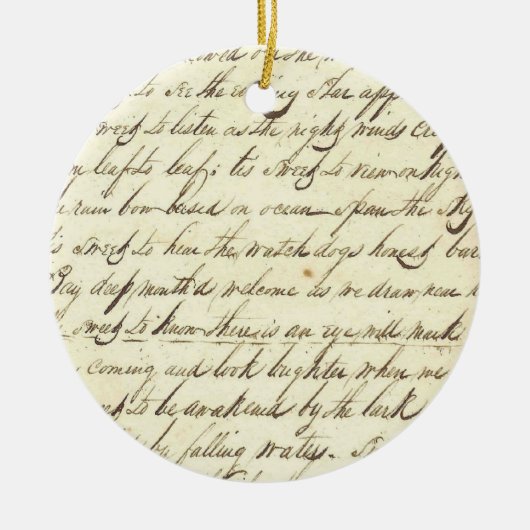 to see the evening star app
sweet to listen as the night winds cre
leaf to leaf: tis sweet to view on high
rain bow based on ocean span the sky
is sweet to hear the watch dogs honest bar
Bay deep mouth'd welcome as we draw near
sweet to know there is an eye will mark
coming and look brighter when we
to be awakened by the lark
by falling waters.